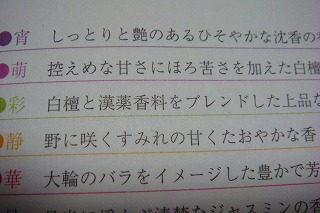 宵 しっとりと艶のあるひそやかな沈香の
萌 控えめな甘さにほろ苦さを加えた白檀
彩 白檀と漢薬香料をブレンドした上品な
静 野に咲くすみれの甘くたおやかな香
華 大輪のバラをイメージした豊かで芳
に浮かぶ清楚なジャスミンの香